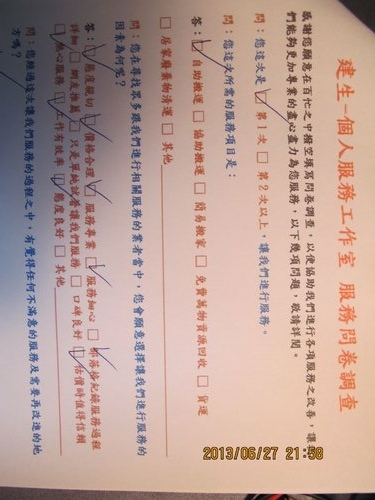 建生-個人服務工作室 服務問卷調查
感謝您願意在百忙之中撥空填寫問卷調查，以便協助我們進行各項服務之改善，讓我
們能夠更加專業的盡心盡力為您服務，以下幾項問題，敬請詳閱。
問：您這次是 □ 第1次 □ 第2次以上，讓我們進行服務。
問：您這次所需的服務項目是：
答：□ 自助搬運 □ 協助搬運 □ 簡易搬家 □ 免費萬物資源回收 □ 貨運
□ 居家廢棄物清運 □ 其他
問：您在尋找眾多跟我們進行相關服務的業者當中，您會願意選擇讓我們進行服務的
因素為何呢？
答：□ 態度親切 □ 價格合理 □ 服務專業 □ 服務細心 □ 部落格紀錄服務過程
詳細 □ 網友推薦 □ 只是單純試答讓我們服務 □ 口碑良好 □ 估價時值得信賴
□ 熱心服務 □ 工作有效率 □ 態度良好 □ 其他
問：您經過這次讓我們服務的過程之中，有覺得任何不滿意的服務及需要再改進的地
方嗎？
2013/06/27 21:58